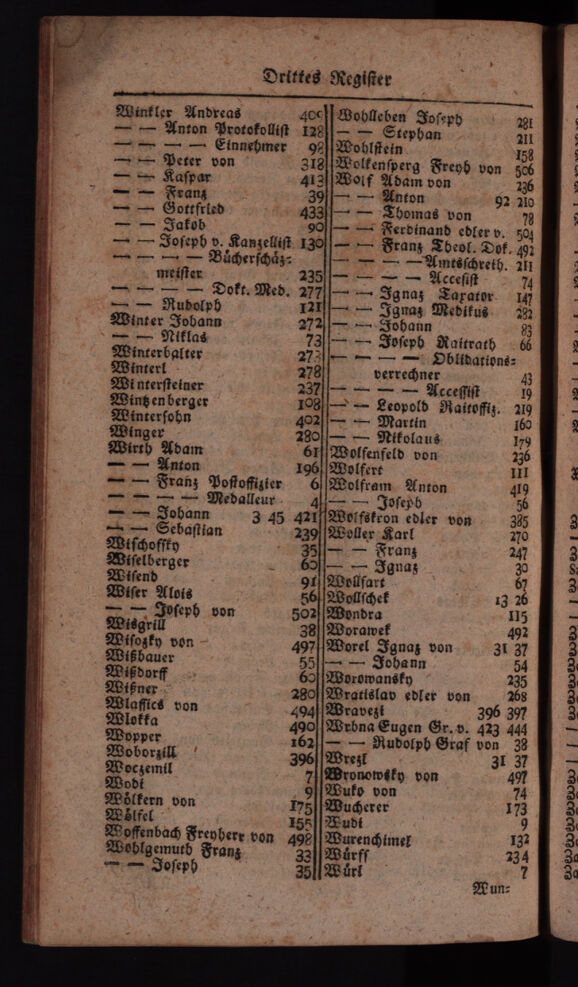 Drittes Register
Winkler Andreas 400
— — Anton Protokollist 128
— — — — Einnehmer 98
— — Peter von 318
— — Kaspar 413
— — Franz 39
— — Gottfried 433
— — Jakob 90
— — Joseph v. Kanzellist 130
— — — — Bücherschäz-
meister 235
— — — — Dokt. Med. 277
— — Rudolph 121
Winter Johann 272
— — Niklas 73
Winterhalter 273
Winterl 278
Wintersteiner 237
Wintzenberger 108
Wintersohn 402
Winger 280
Wirth Adam 61
— — Anton 196
— — Franz Postoffizier 6
— — — — Medalleur 4
— — Johann 3 45 421
— — Sebastian 239
Wischoffky 35
Wiselberger 60
Wisend 91
Wiser Alois 56
— — Joseph von 502
Wisgrill 38
Wisozky von 497
Wißbauer 55
Wißdorff 60
Wißner 280
Wlassics von 494
Wlokka 490
Wopper 162
Woborzill 396
Woczemil 7
Wodi 9
Wölkern von 175
Wölfel 155
Woffenbach Freyherr von 498
Wohlgemuth Franz 33
— — Joseph 35
Wohlleben Joseph 281
— — Stephan 211
Wohlstein 158
Wolkensperg Freyh von 506
Wolf Adam von 236
— — Anton 92 210
— — Thomas von 78
— — Ferdinand edler v. 504
— — Franz Theol. Dok. 492
— — — — Amtsschreib. 211
— — — — Accesist 74
— — Ignaz Taxator 147
— — Ignaz Medikus 282
— — Johann 83
— — Joseph Raitrath 66
— — — — Oblidations-
verrechner 43
— — — — Accessist 19
— — Leopold Raitoffiz. 219
— — Martin 160
— — Nikolaus 179
Wolfenfeld von 236
Wolfert 111
Wolfram Anton 419
— — Joseph 56
Wolfskron edler von 385
Woller Karl 270
— — Franz 247
— — Ignaz 30
Wollfart 67
Wollschek 13 26
Wondra 115
Worawek 492
Worel Ignaz von 31 37
— — Johann 54
Worowansky 235
Wratislav edler von 268
Wravezi 396 397
Wrbna Eugen Gr. v. 423 444
— — Rudolph Graf von 38
Wrezl 31 37
Wronowsky von 497
Wuko von 74
Wucherer 173
Wudi 9
Wurenchimel 132
Würff 234
Würl 7
Wun-